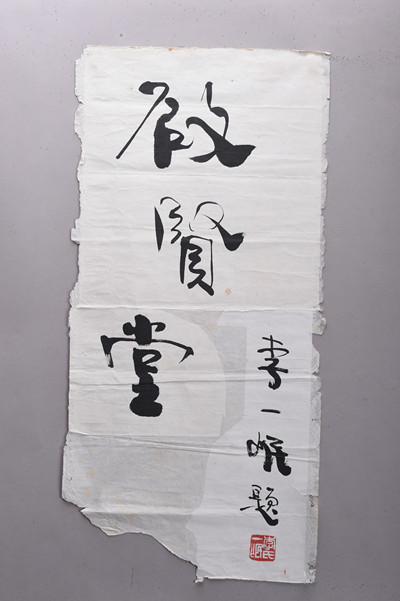 啟賢堂
李一氓題